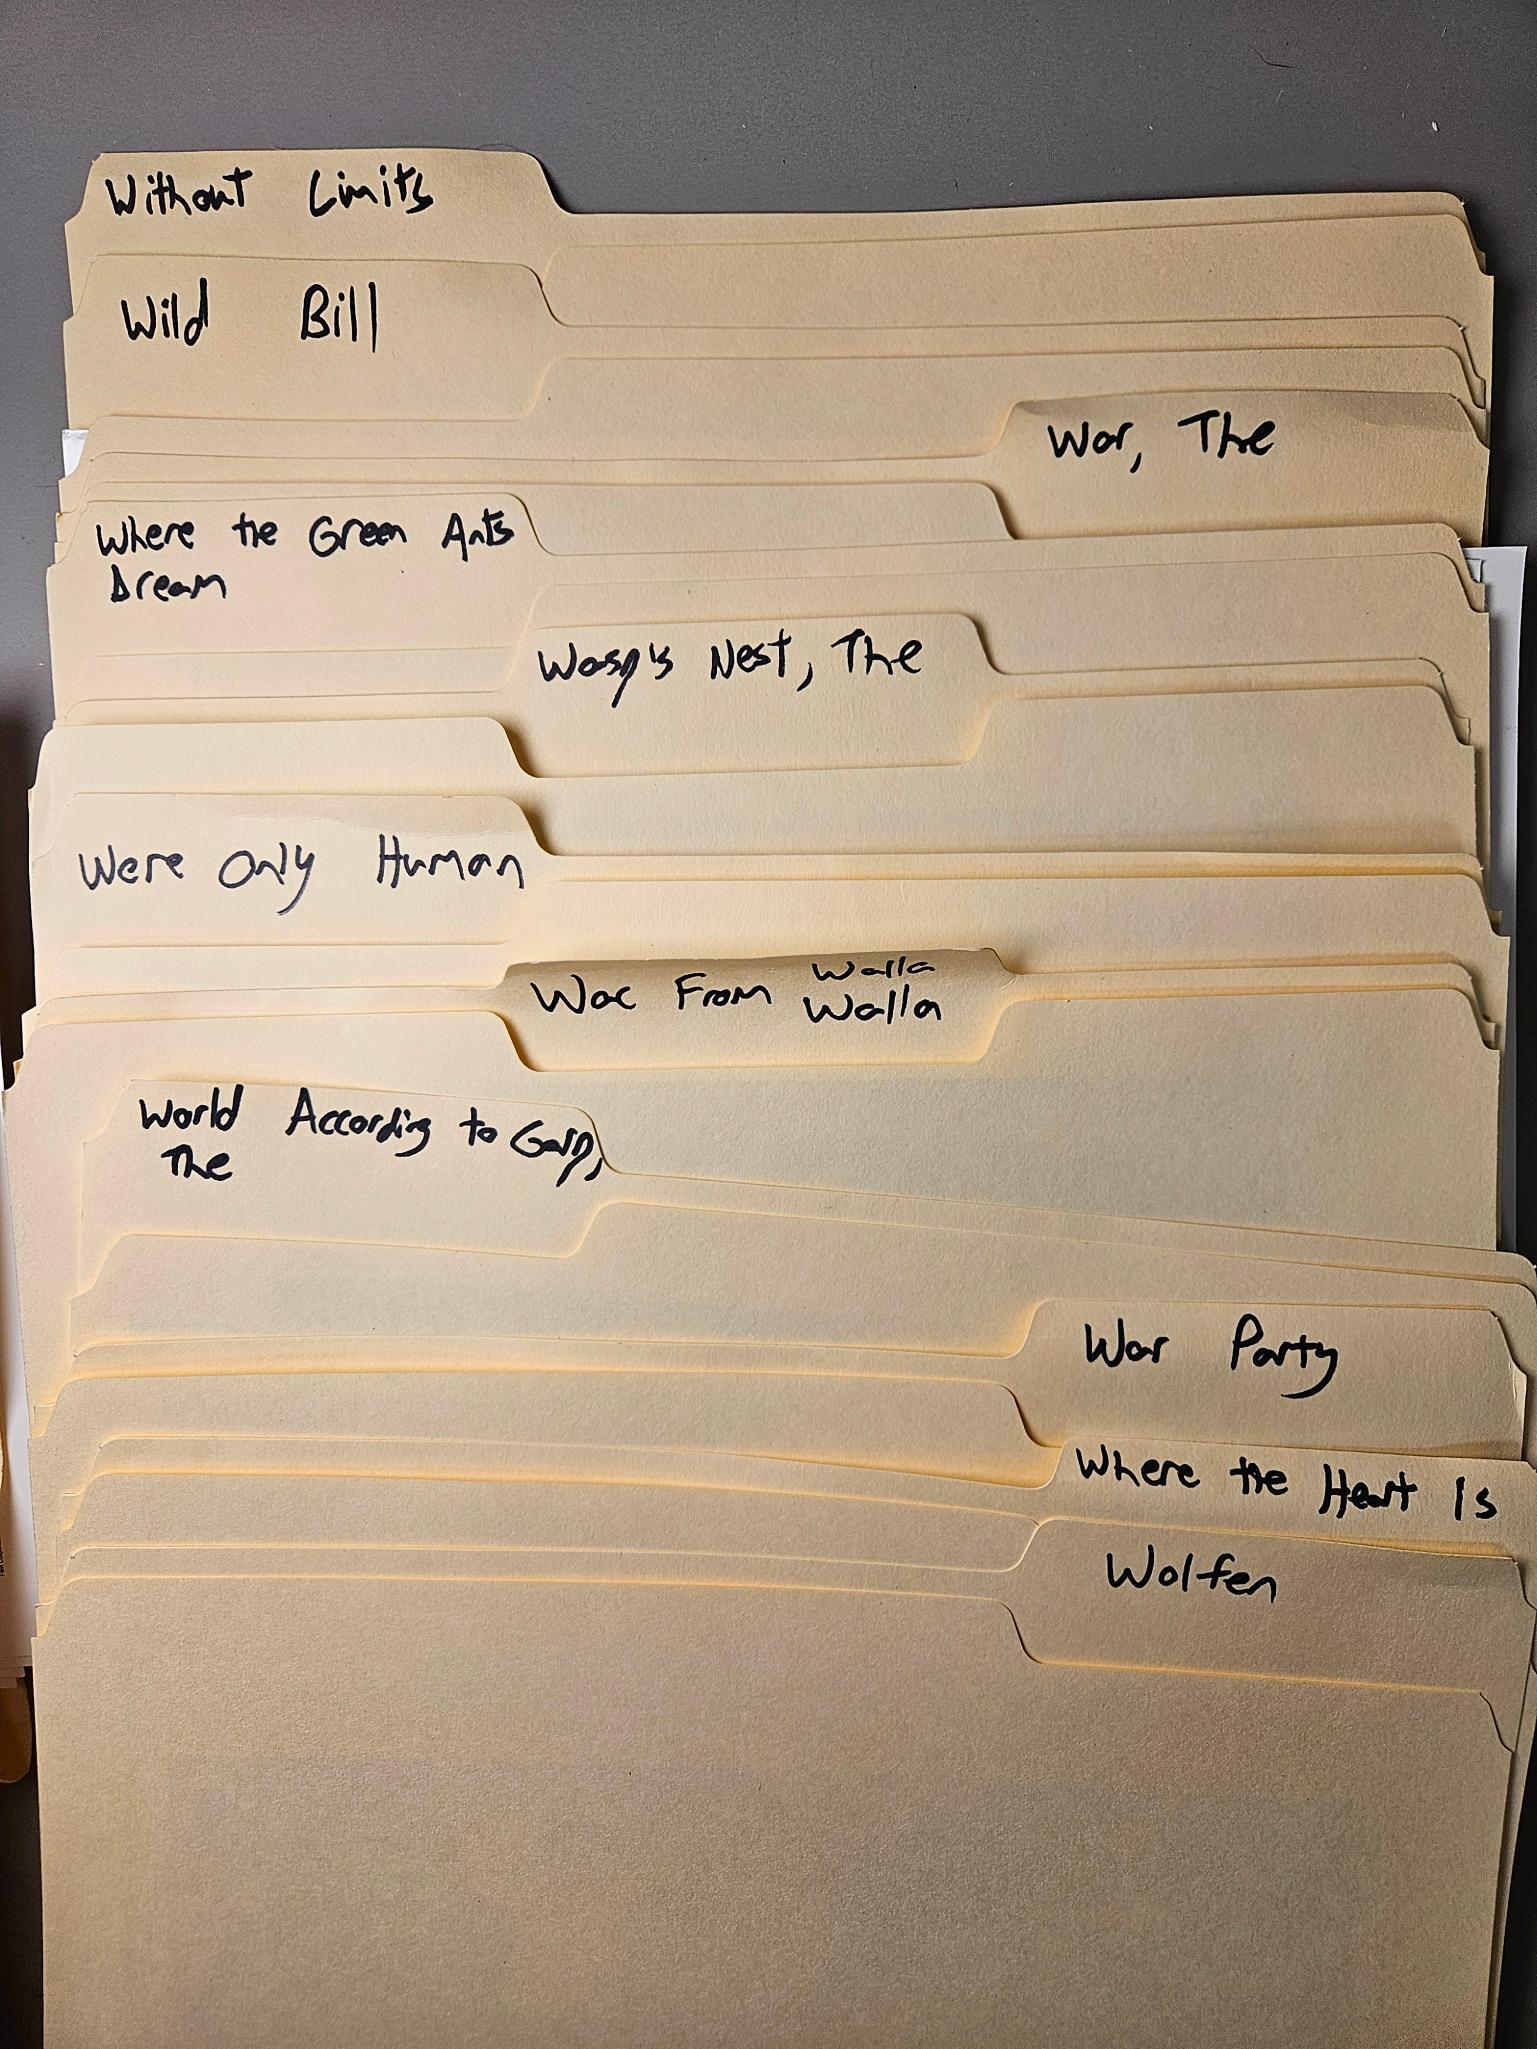 Without Limits
Wild Bill
War, The
Where the Green Ants
Dream
Wasp's Nest, The
Were Only Human
Wac From Walla
Walla
World According to Garp,
The
War Party
Where the Heart Is
Wolfen